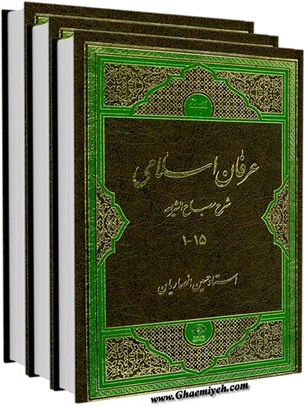 عرفان اسلامی
شرح مصباح الشریعه
۱-۱۵
استاد حسین انصاریان
www.Ghaemiyeh.com